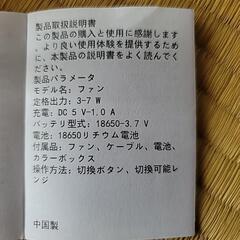 製品取扱説明書
この製品の購入と使用に感謝します
、より良い使用体験を提供するため
に、本製品の説明書をよく読んでくだ
さい。
製品パラメータ
モデル名：ファン
定格出力：3-7 W
充電：DC 5 V-1.0 A
バッテリ型式：18650-3.7 V
電池：18650リチウム電池
付属品：ファン、ケーブル、電池、
カラーボックス
操作方法：切換ボタン、切換可能レ
ンジ
中国製